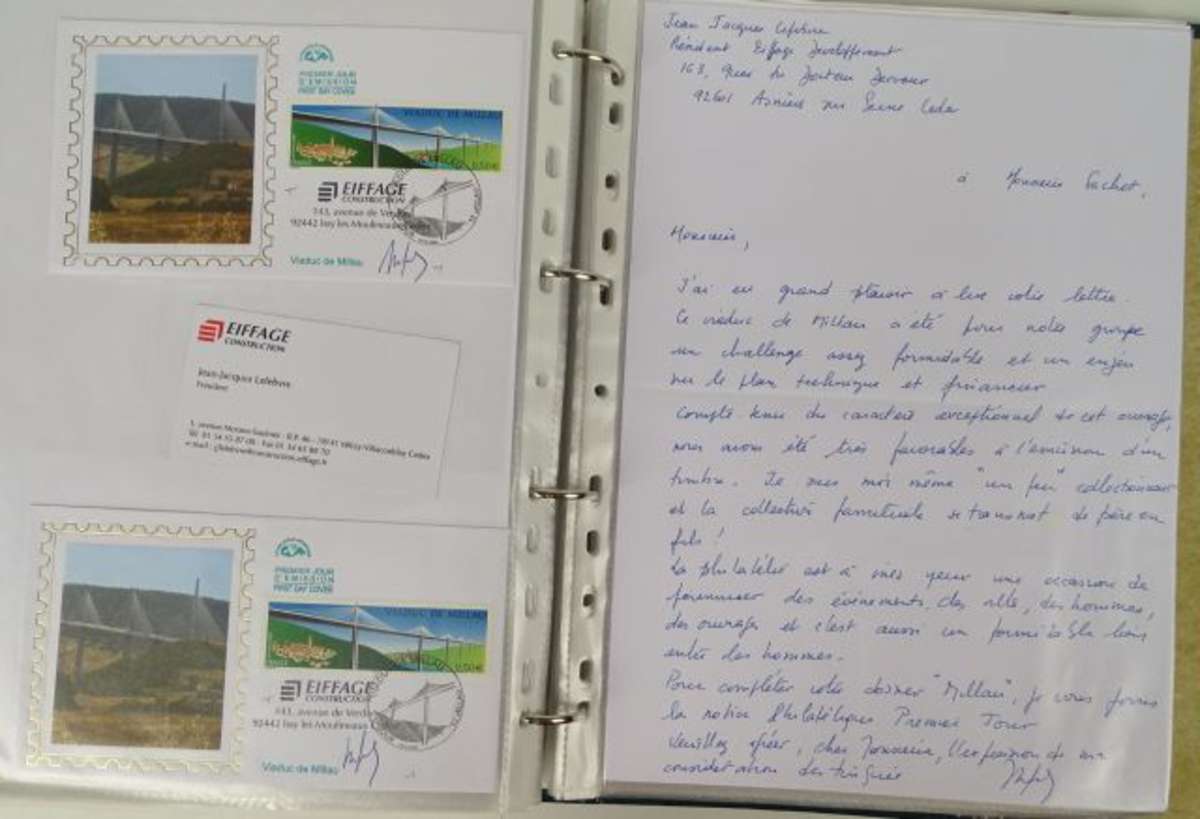 PREMIER JOUR
D'ÉMISSION
FIRST DAY COVER
VIADUC DE MILLAU
0,50€
EIFFAGE
CONSTRUCTION
143, avenue de Verdun
92442 Issy les Moulineaux
Viaduc de Millau
EIFFAGE
CONSTRUCTION
Jean-Jacques Lefebvre
Président
PREMIER JOUR
D'ÉMISSION
FIRST DAY COVER
VIADUC DE MILLAU
0,50€
EIFFAGE
CONSTRUCTION
143, avenue de Verdun
92442 Issy les Moulineaux
Viaduc de Millau
Jean Jacques Lefebvre
Président Eiffage Développement
163, Quai du Docteur Dervaux
92601 Asnières sur Seine Cedex
à Monsieur
Monsieur,
J'ai eu grand plaisir à lire votre lettre.
Ce viaduc de Millau a été pour notre groupe
un challenge assez formidable et un enjeu
sur le plan technique et financier
compte tenu du caractère exceptionnel de cet ouvrage,
nous avons été très favorables à l'émission d'un
timbre. Je suis moi même "un peu" collectionneur
et la collection familiale se transmet de père en
fils !
La philatélie est à mes yeux une occasion de
des événements, des ville, des hommes,
des ouvrages et c'est aussi un formidable lien
entre les hommes.
Pour compléter votre dossier "Millau", je vous
la notice Philatélique Premier Jour
Veuillez agréer, cher Monsieur, l'expression de ma
considération distinguée